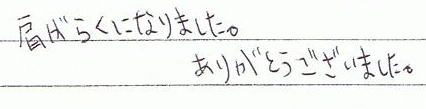 肩がらくになりました。
ありがとうございました。